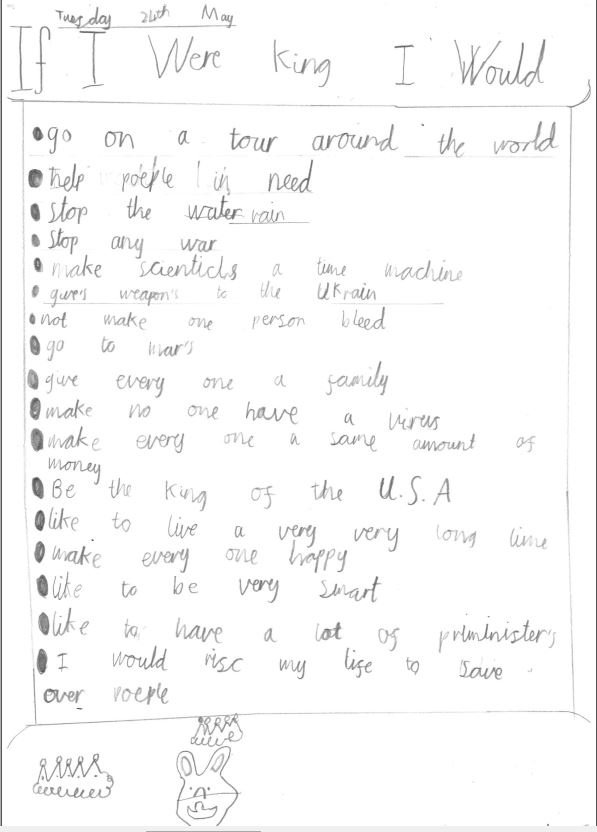 Tuesday 24th May
If I Were King I Would
• go on a tour around the world
• help poeple in need
• stop the water rain
• Stop any war
• make scienticls a time machine
• give's weapon's to the Ukrain
• not make one person bleed
• go to mar's
• give every one a family
• make no one have a virus
• make every one a same amount of
money
• Be the King of the U.S.A
• like to live a very very long time
• make every one happy
• like to be very smart
• like to have a lot of priminister's
• I would risc my life to save
over poeple